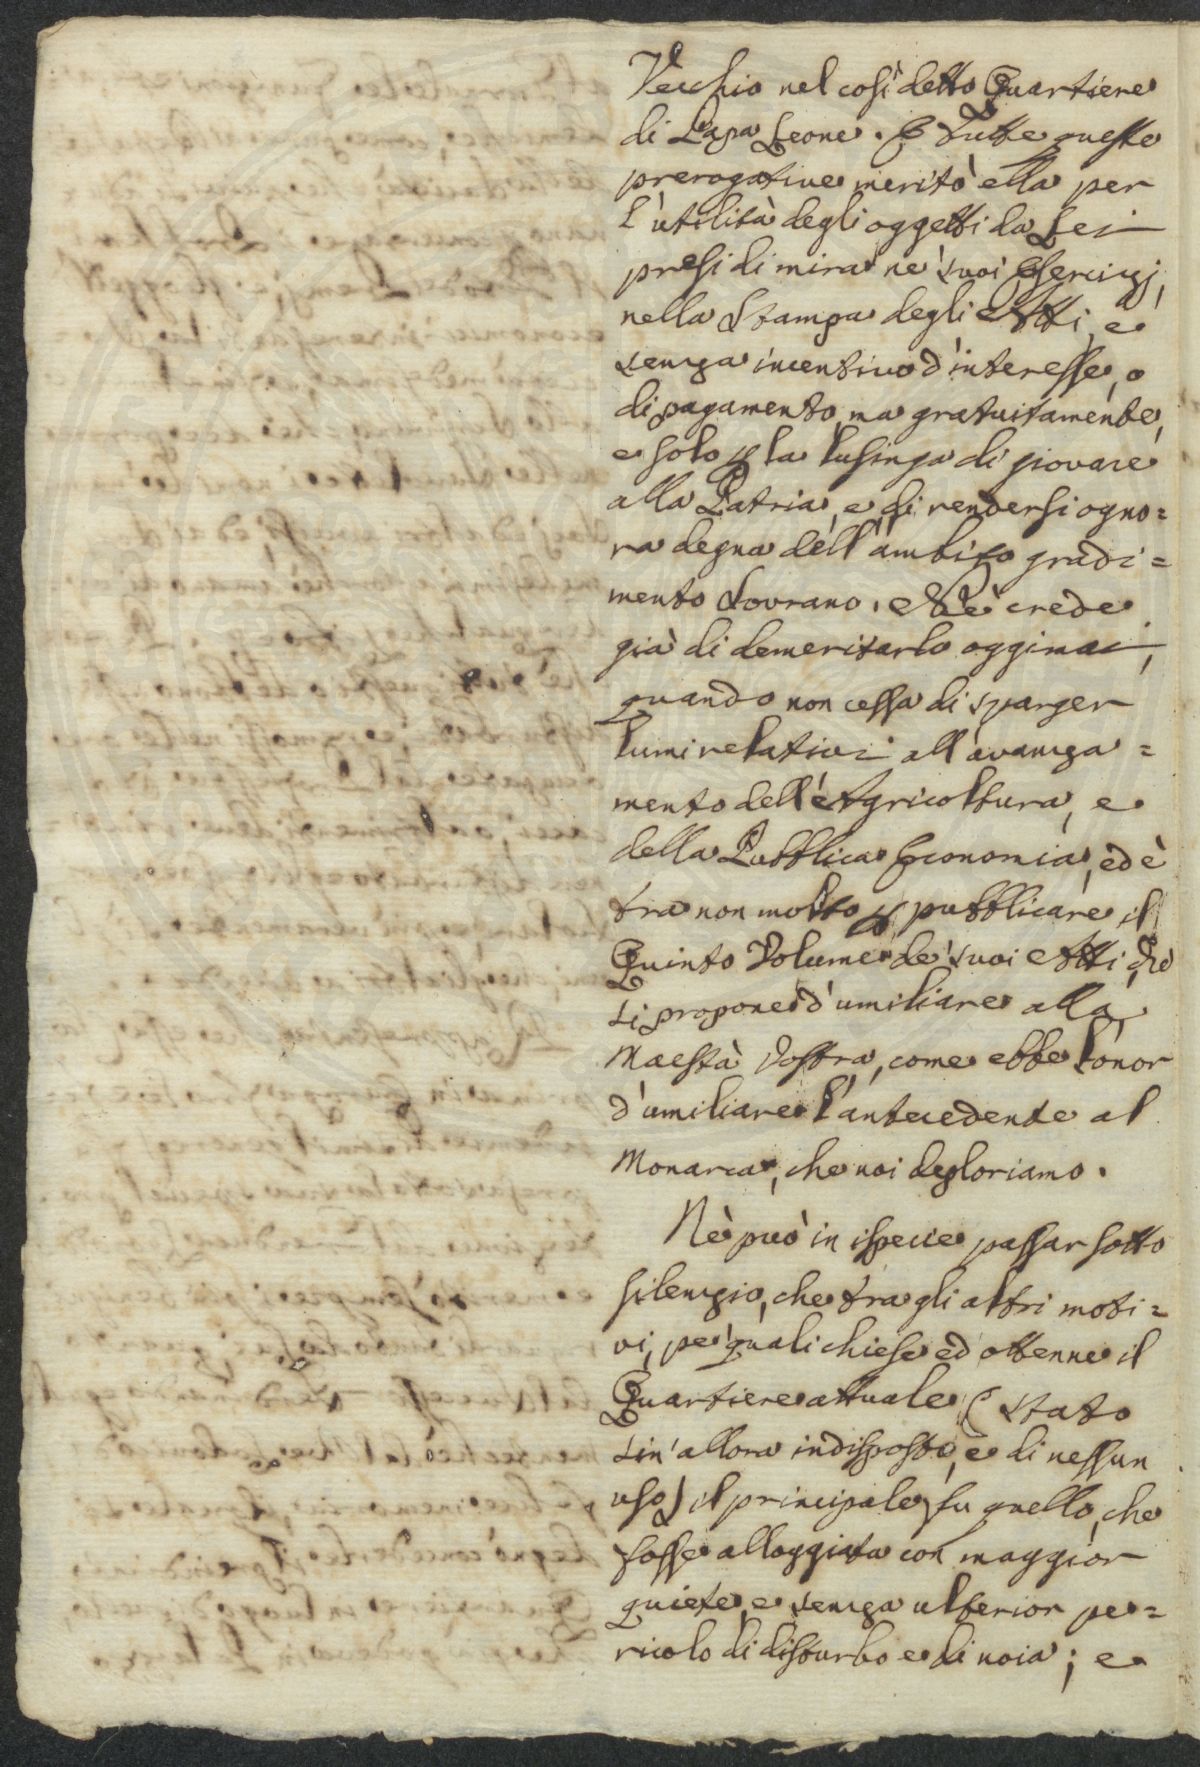 Vecchio nel così detto Quartiere
di Papa Leone. E tutte queste
prerogative meritò ella per
l'utilità degli oggetti da Lei
presi di mira ne' suoi Esercizj,
nella Stampa degli Atti, e
senza incentivo d'interesse, o
di pagamento, ma gratuitamente,
e solo p la lusinga di giovare
alla Patria, e di rendersi ogno=
ra degna dell'ambito gradi=
mento Sovrano. Nè crede
già di demeritarlo oggimai,
quando non cessa di sparger
lumi relativi all'avanza=
mento dell'Agricoltura, e
della Pubblica Economia, ed è
tra non molto p pubblicare il
Quinto Volume de' suoi Atti, che
si propone d'umiliare alla
Maestà Vostra, come ebbe l'onor
d'umiliare l'antecedente al
Monarca, che noi deploriamo.
Nè può in ispecie passar sotto
silenzio, che tra gli altri moti=
vi, pe' quali chiese ed ottenne il
Quartiere attuale (stato
sin'allora indisposto, e di nessun
uso) il principale fu quello, che
fosse alloggiata con maggior
quiete, e senza ulterior pe=
ricolo di disturbo e di noia; e